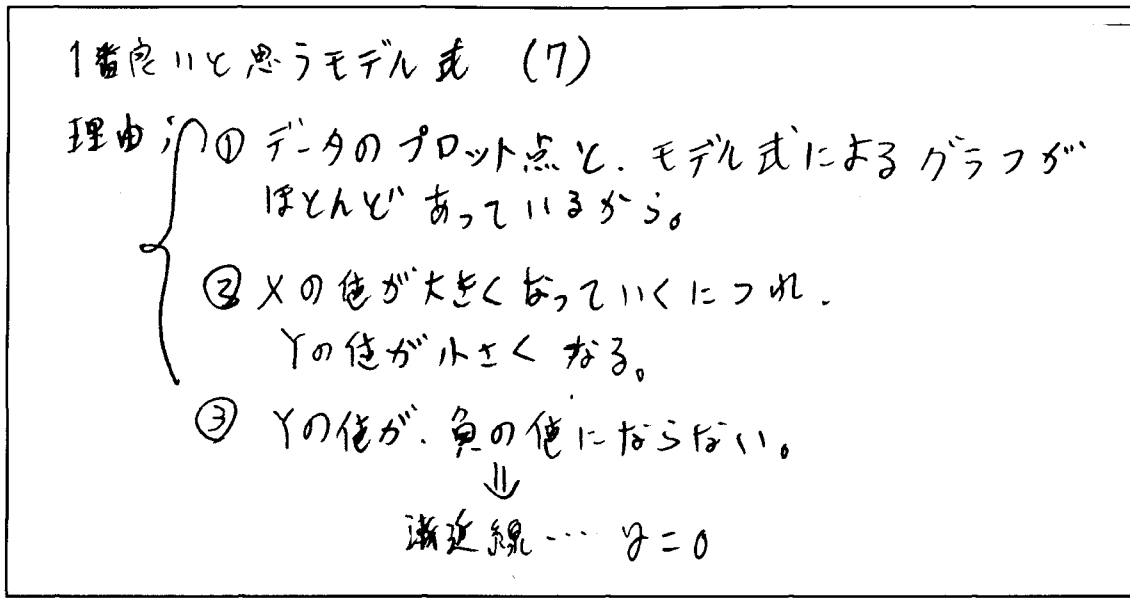 1番良いと思うモデル式 (7)
理由; ① データのプロット点と、モデル式によるグラフが
ほとんどあっているから。
② Xの値が大きくなっていくにつれ、
Yの値が小さくなる。
③ Yの値が、負の値にならない。
⇓
漸近線… y=0